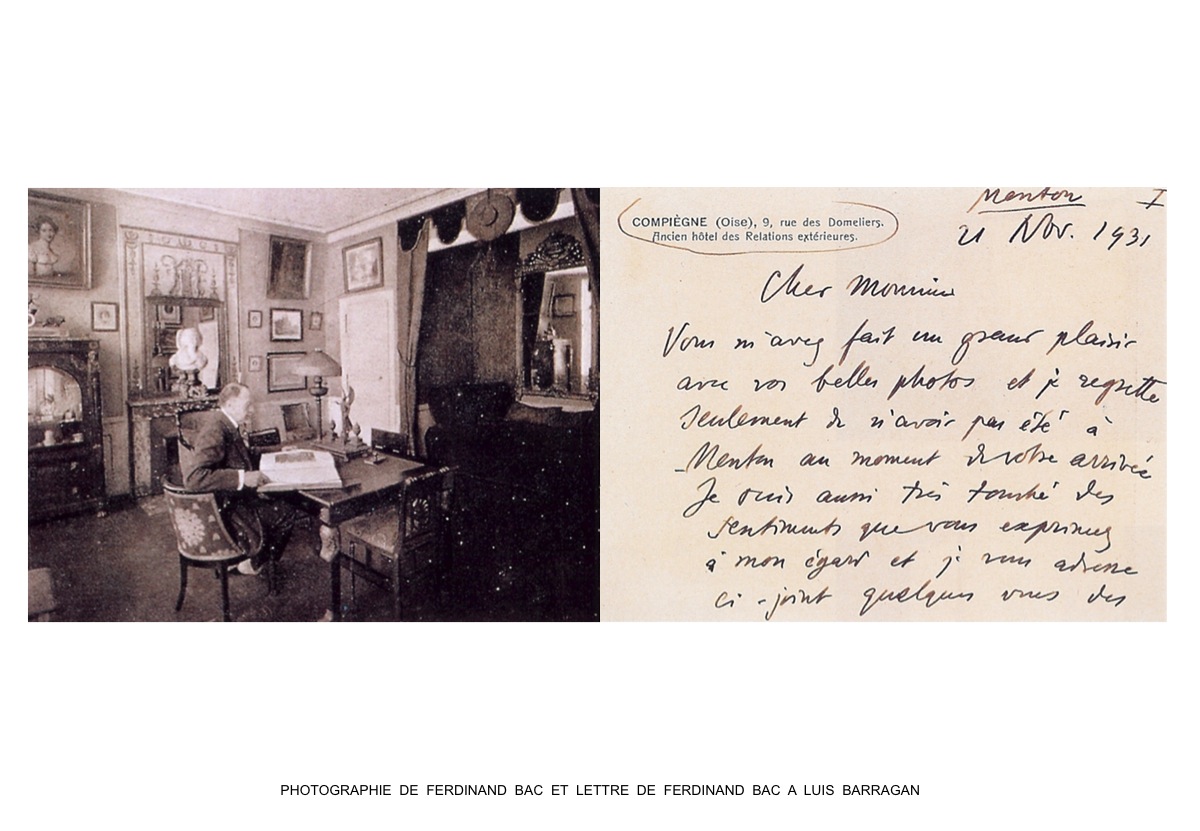 COMPIÈGNE (Oise), 9, rue des Domeliers.
Ancien hôtel des Relations extérieures.
Menton I
21 Nov. 1931
Cher Monsieur
Vous m'avez fait un grand plaisir
avec vos belles photos et je regrette
seulement de n'avoir pas été à
Menton au moment de votre arrivée
Je suis aussi très touché des
sentiments que vous exprimez
à mon égard et je vous adresse
ci-joint quelques vues des
PHOTOGRAPHIE DE FERDINAND BAC ET LETTRE DE FERDINAND BAC A LUIS BARRAGAN